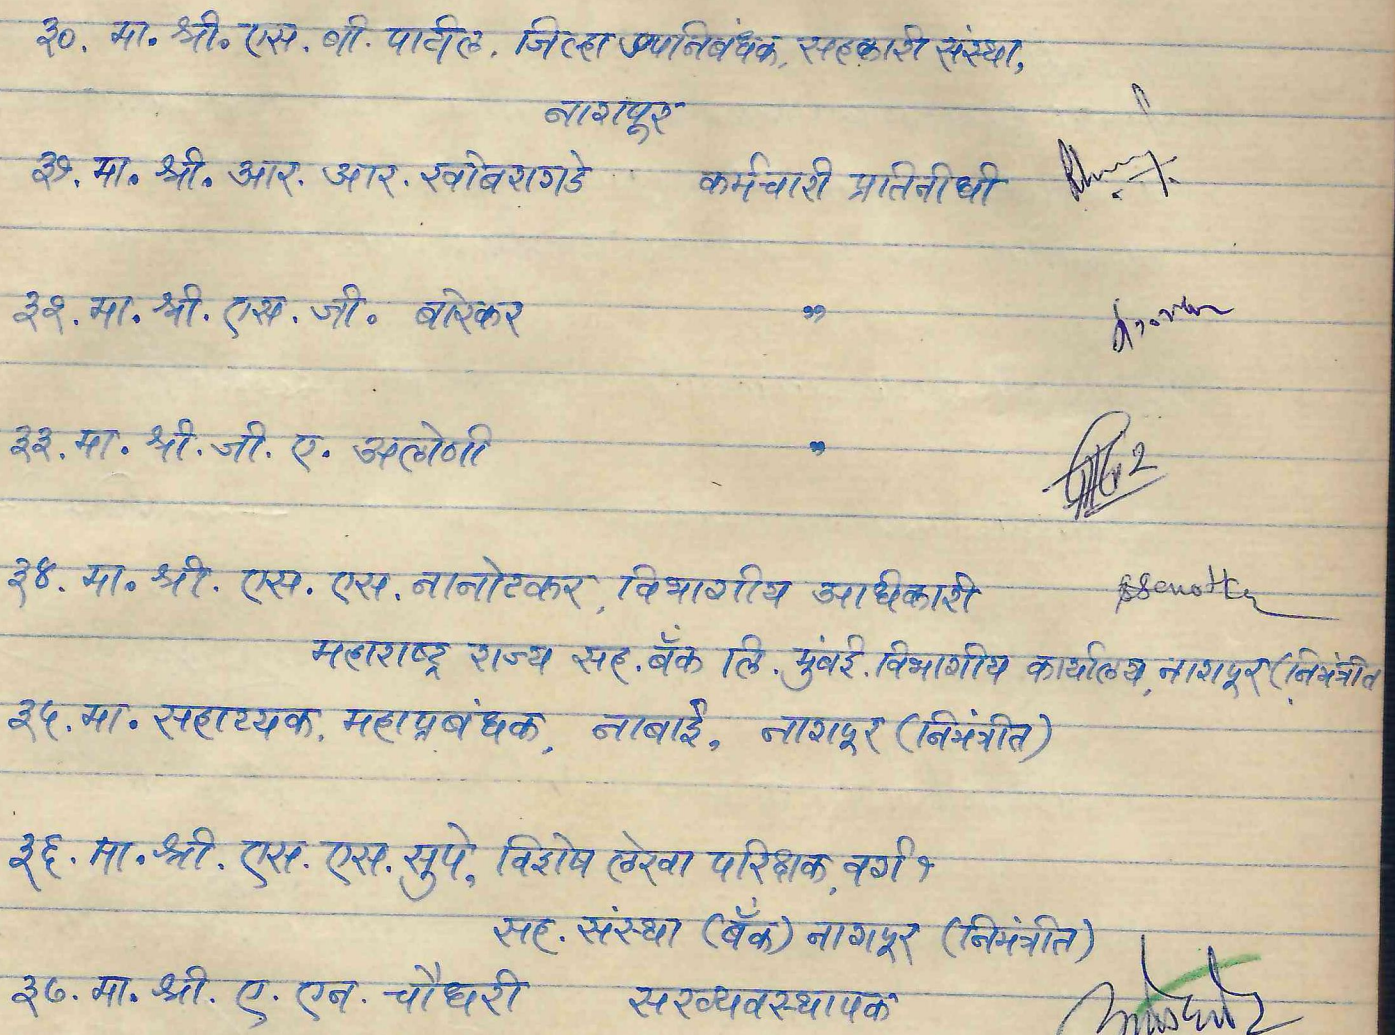 ३०. मा. श्री. एस. बी. पाटील. जिल्हा उपनिबंधक, सहकारी संस्था,
नागपूर
३१. मा. श्री. आर. आर. खोबरागडे कर्मचारी प्रतिनीधी
३२. मा. श्री. एस. जी. बारेकर "
३३. मा. श्री. जी. ए. अलोणी "
३४. मा. श्री. एस. एस. नानोटकर, विभागीय आधिकारी
महाराष्ट्र राज्य सह. बँक लि. मुंबई. विभागीय कार्यालय, नागपूर (निमंत्रीत
३५. मा. सहाय्यक, महाप्रबंधक, नाबार्ड, नागपूर (निमंत्रीत)
३६. मा. श्री. एस. एस. सुपे, विशेष लेखा परिक्षक, वर्ग १
सह. संस्था (बँक) नागपूर (निमंत्रीत)
३७. मा. श्री. ए. एन. चौधरी सरव्यवस्थापक